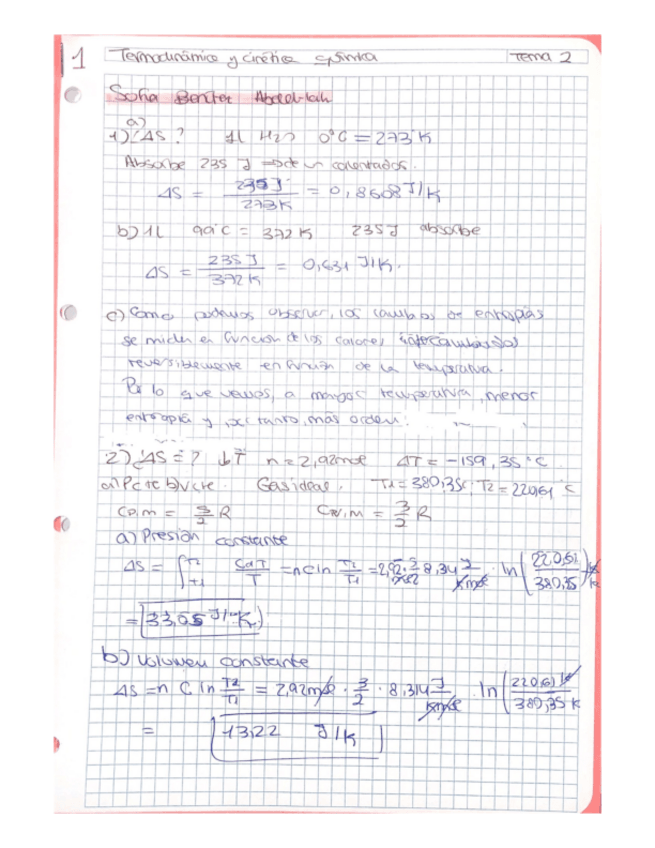 1 Termodinámica y cinética química Tema 2
Sofia
a)
1) ¿ΔS? 1l H2O 0°C = 273 K
Absorbe 235 J
ΔS = 235 J / 273 K = 0,8608 J/K
b) 1L 99°C = 372 K 235 J absorbe
ΔS = 235 J / 372 K = 0,631 J/K.
c) Como podemos observar, los cambios de entropías
se miden en función de los calores intercambiados
reversiblemente en función de la temperatura.
Por lo que vemos, a mayor temperatura, menor
entropía y por tanto, más orden.
2) ¿ΔS = ? ↓T n = 2,92 mol ΔT = -159,35 °C
a) P cte b) V cte. Gas ideal. T1 = 380,35 T2 = 220,61 °C
Cp,m = R Cv,m = 3/2 R
a) Presión constante
ΔS = ∫T1T2 CdT/T = nC ln T2/T1 = 2,92 · 8,314 J/Kmol · ln (220,61 K / 380,35 K)
= 33,05 J/K
b) Volumen constante
ΔS = n C ln T2/T1 = 2,92 mol · 3/2 · 8,314 J/Kmol · ln (220,61 K / 380,35 K)
= 13,22 J/K